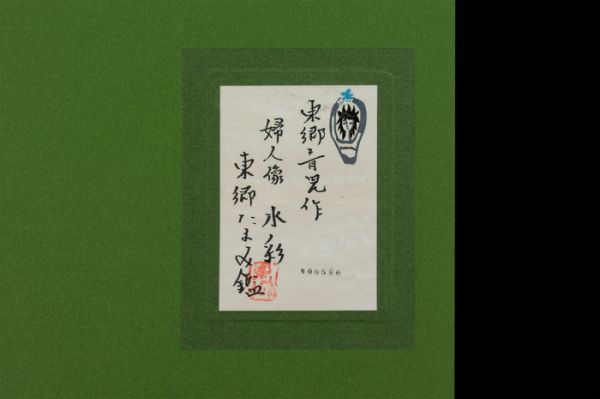 東郷青児作
婦人像 水彩
東郷たまみ鑑
№00586